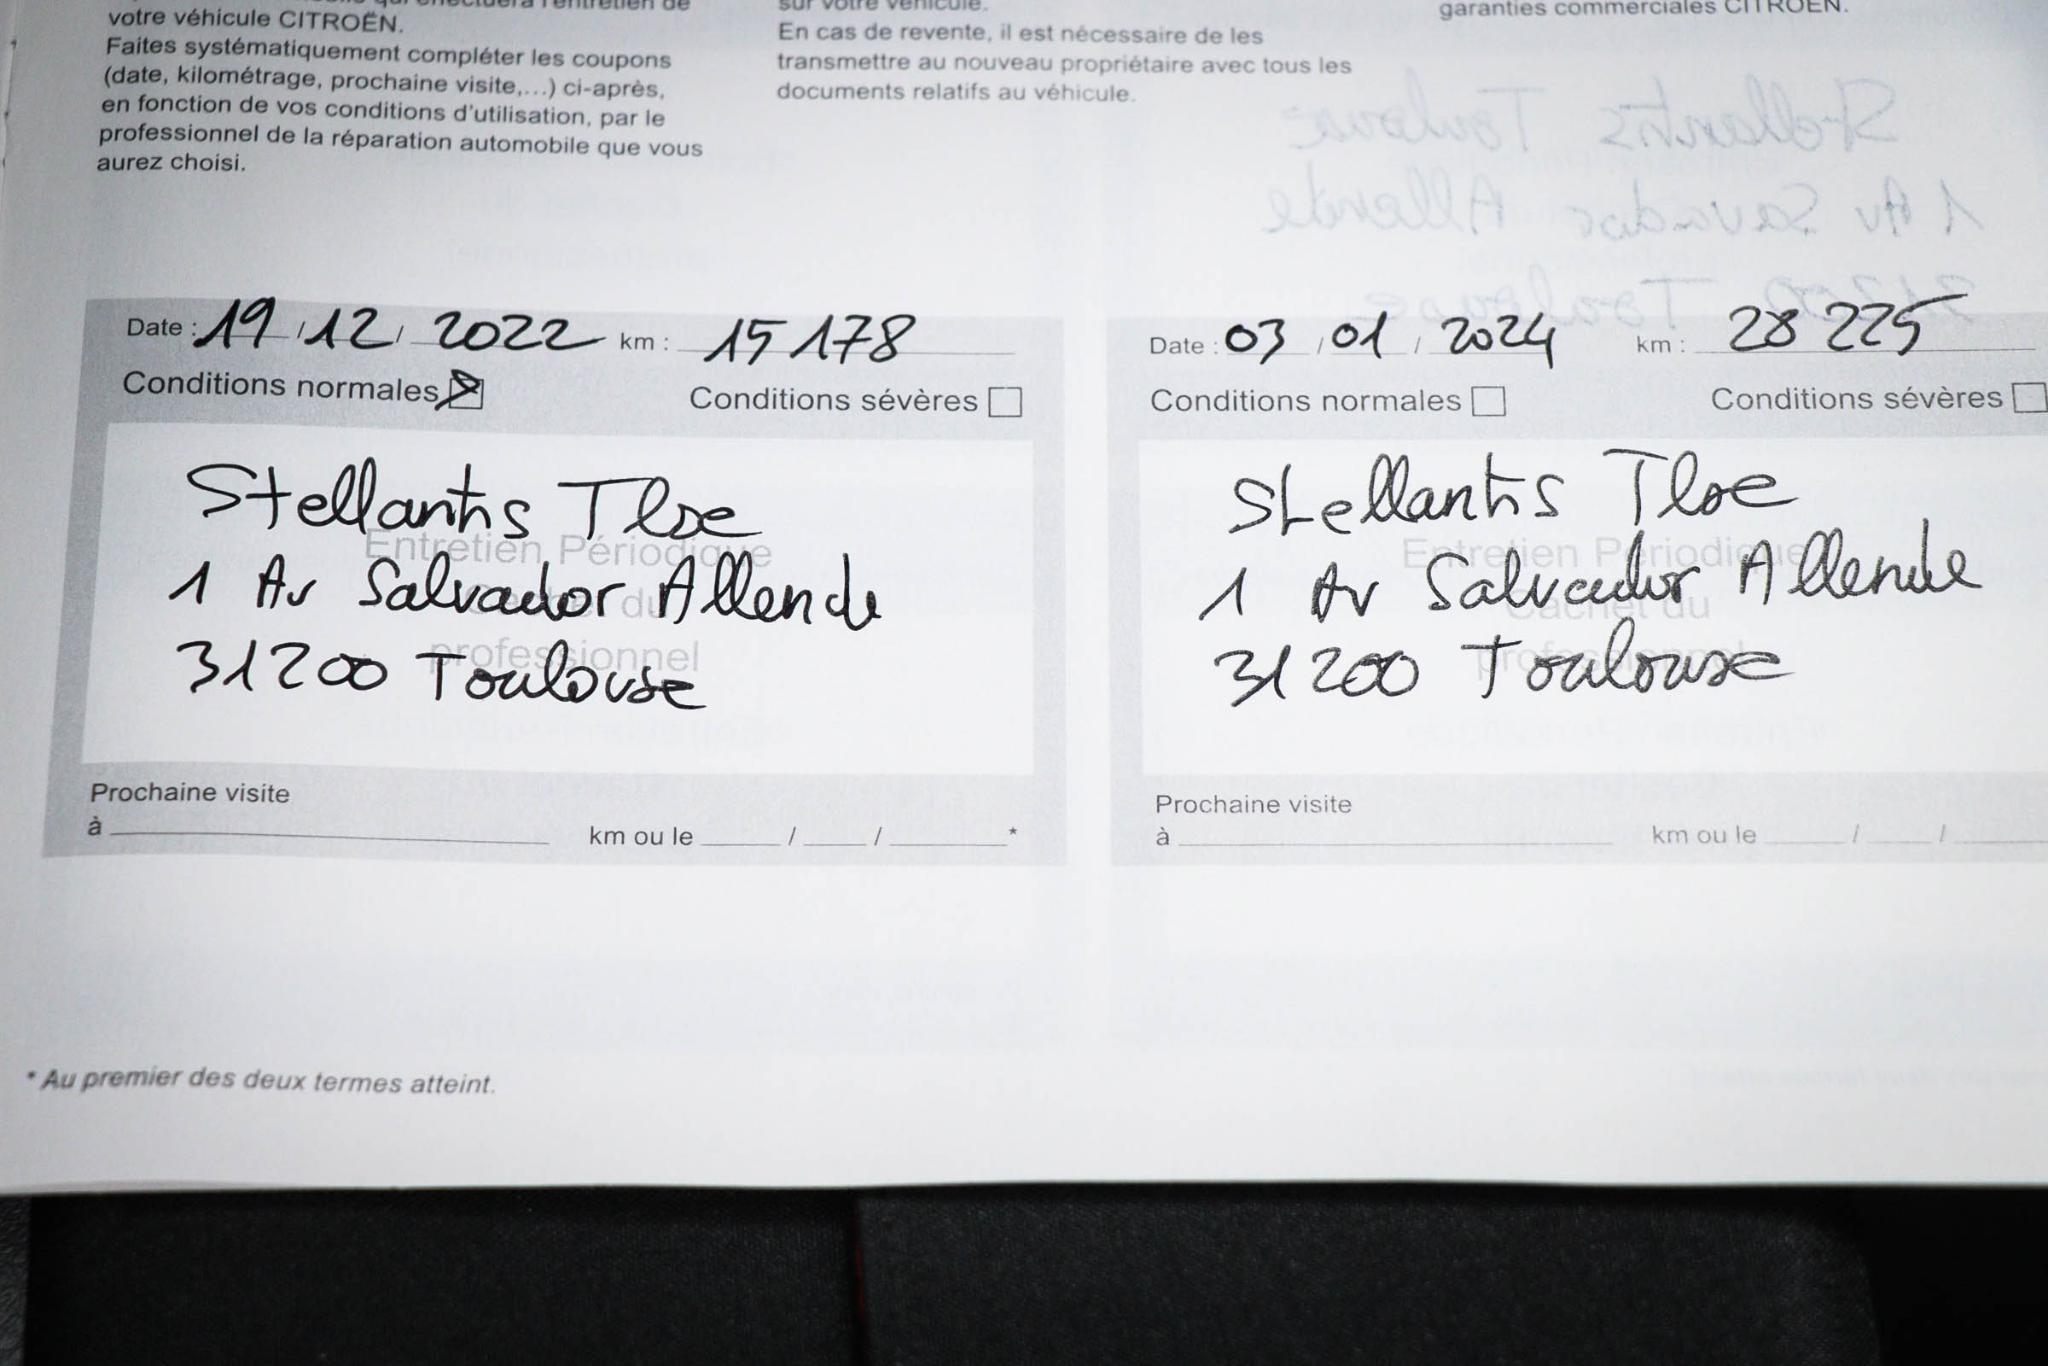 votre véhicule CITROËN.
Faites systématiquement compléter les coupons
(date, kilométrage, prochaine visite,...) ci-après,
en fonction de vos conditions d'utilisation, par le
professionnel de la réparation automobile que vous
aurez choisi.
sur votre véhicule.
En cas de revente, il est nécessaire de les
transmettre au nouveau propriétaire avec tous les
documents relatifs au véhicule.
garanties commerciales CITROËN.
Date : 19 / 12 / 2022 km : 15 178
Conditions normales Conditions sévères
Stellantis Tlse
Entretien Périodique
1 Av Salvador Allende
Cachet du
31200 Toulouse
professionnel
Prochaine visite
à km ou le / / *
Date : 03 / 01 / 2024 km : 28 225
Conditions normales Conditions sévères
Stellantis Tlse
Entretien Périodique
1 Av Salvador Allende
Cachet du
31200 Toulouse
professionnel
Prochaine visite
à km ou le / /
* Au premier des deux termes atteint.